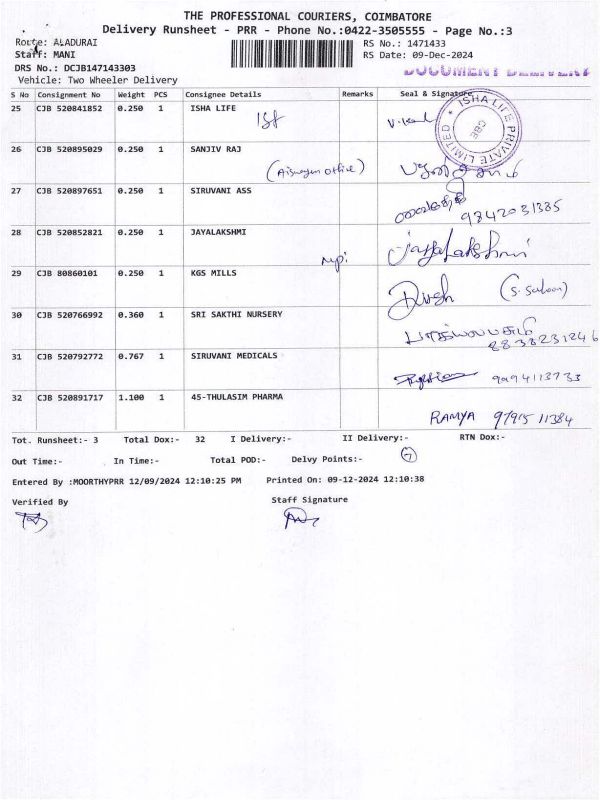 THE PROFESSIONAL COURIERS, COIMBATORE
Delivery Runsheet - PRR - Phone No.:0422-3505555 - Page No.:3
Route: ALADURAI RS No.: 1471433
Staff: MANI RS Date: 09-Dec-2024
DRS No.: DCJB147143303
DOCUMENT DELIVERY
Vehicle: Two Wheeler Delivery
S No Consignment No Weight PCS Consignee Details Remarks Seal & Signature
25 CJB 520841852 0.250 1 ISHA LIFE
ISHA LIFE PRIVATE LIMITED * CBE
26 CJB 520895029 0.250 1 SANJIV RAJ
27 CJB 520897651 0.250 1 SIRUVANI ASS
9842031385
28 CJB 520852821 0.250 1 JAYALAKSHMI
Jayalakshmi
29 CJB 80860101 0.250 1 KGS MILLS
30 CJB 520766992 0.360 1 SRI SAKTHI NURSERY
8838231246
31 CJB 520792772 0.767 1 SIRUVANI MEDICALS
9994113733
32 CJB 520891717 1.100 1 45-THULASIM PHARMA
RAMYA 97915 11384
Tot. Runsheet:- 3 Total Dox:- 32 I Delivery:- II Delivery:- RTN Dox:-
Out Time:- In Time:- Total POD:- Delvy Points:-
Entered By :MOORTHYPRR 12/09/2024 12:10:25 PM Printed On: 09-12-2024 12:10:38
Verified By Staff Signature